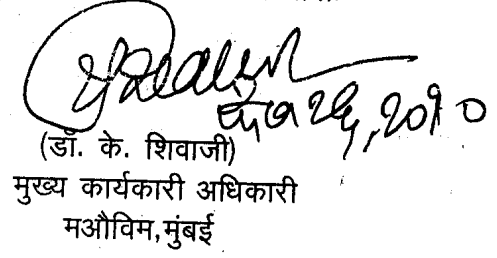 (डॉ. के. शिवाजी)
मुख्य कार्यकारी अधिकारी
मऔविम,मुंबई